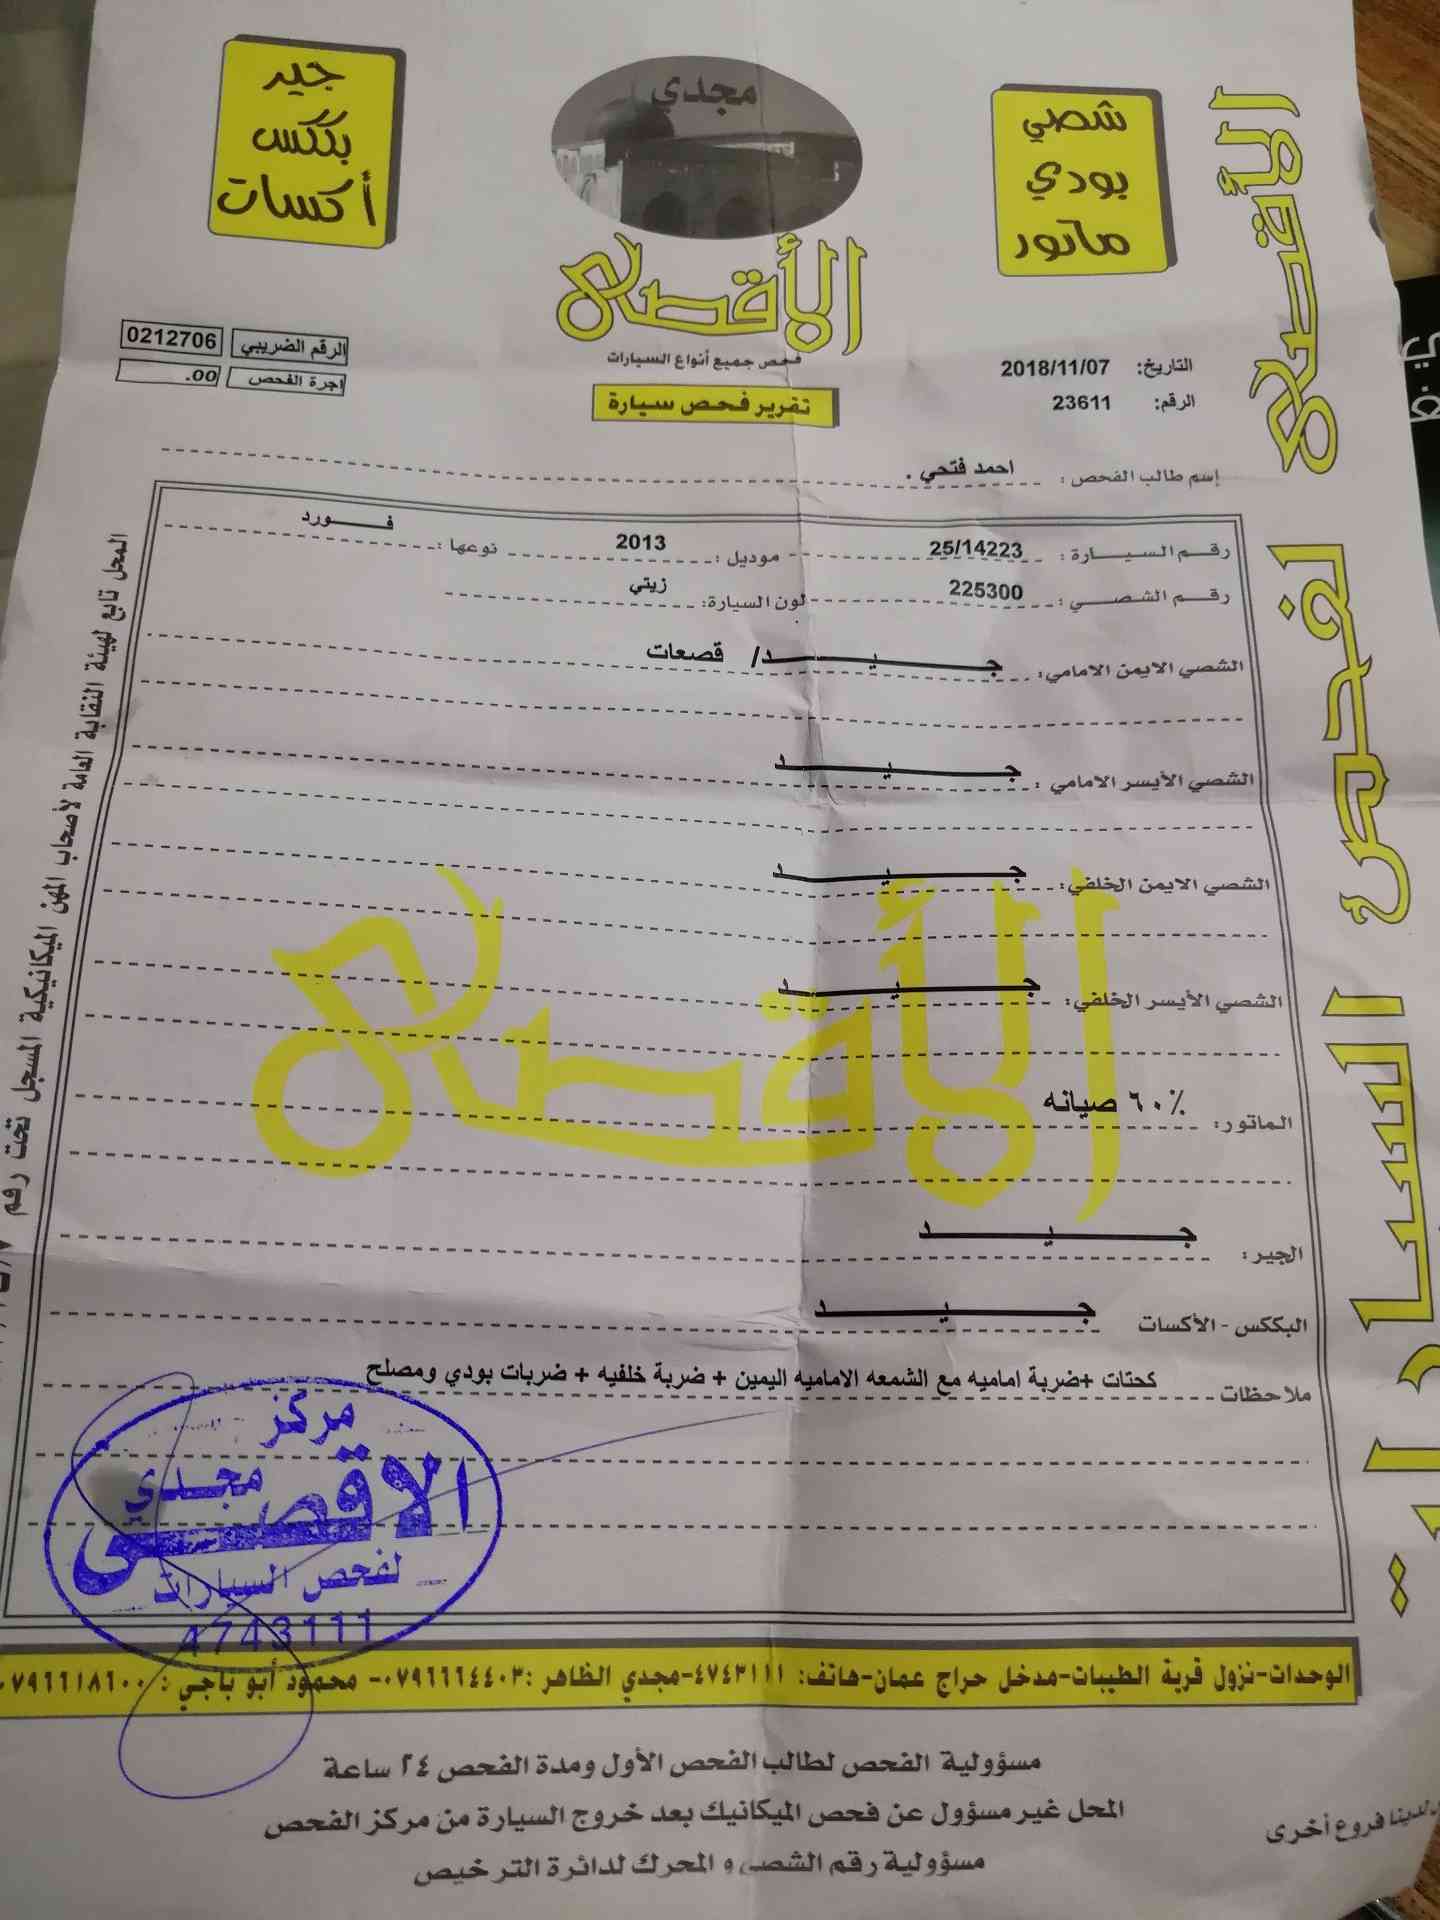 جير
بككس
أكسات
مجدي
الأقصى
فحص جميع أنواع السيارات
تقرير فحص سيارة
شصي
بودي
ماتور
الرقم الضريبي 0212706
اجرة الفحص .00
التاريخ: 2018/11/07
الرقم: 23611
إسم طالب الفحص: احمد فتحي .
رقم السيارة: 25/14223 موديل: 2013 نوعها: فورد
رقم الشصي: 225300 لون السيارة: زيتي
الشصي الايمن الامامي: جيد/ قصعات
الشصي الأيسر الامامي: جيد
الشصي الايمن الخلفي: جيد
الشصي الأيسر الخلفي: جيد
الماتور: ٦٠٪ صيانه
الجير: جيد
البككس - الأكسات جيد
ملاحظات كحتات +ضربة اماميه مع الشمعه الاماميه اليمين + ضربة خلفيه + ضربات بودي ومصلح
الأقصى
مركز
مجدي
الاقصى
لفحص السيارات
4743111
الوحدات-نزول قرية الطيبات-مدخل حراج عمان-هاتف: ٤٧٤٣١١١-مجدي الظاهر :٠٧٩٦٦٦٤٤٠٣- محمود أبو باجي : ٠٧٩٦٦١٨٦٠٠
مسؤولية الفحص لطالب الفحص الأول ومدة الفحص ٢٤ ساعة
المحل غير مسؤول عن فحص الميكانيك بعد خروج السيارة من مركز الفحص
مسؤولية رقم الشصي و المحرك لدائرة الترخيص
لدينا فروع أخرى
الأقصى لفحص السيارات
المحل تابع لهيئة النقابة العامة لأصحاب المهن الميكانيكية المسجل تحت رقم